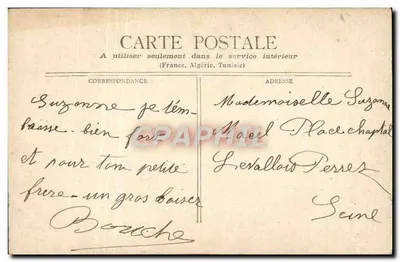 CARTE POSTALE
A utiliser seulement dans le service intérieur
(France, Algérie, Tunisie)
CORRESPONDANCE
Suzanne je t'em-
brasse - bien fort -
et pour ton petit
frere - un gros baiser
Bouche
ADRESSE
Mademoiselle Suzanne
Place chaptal
Levallois Perret
Seine
CARTAPHILIA